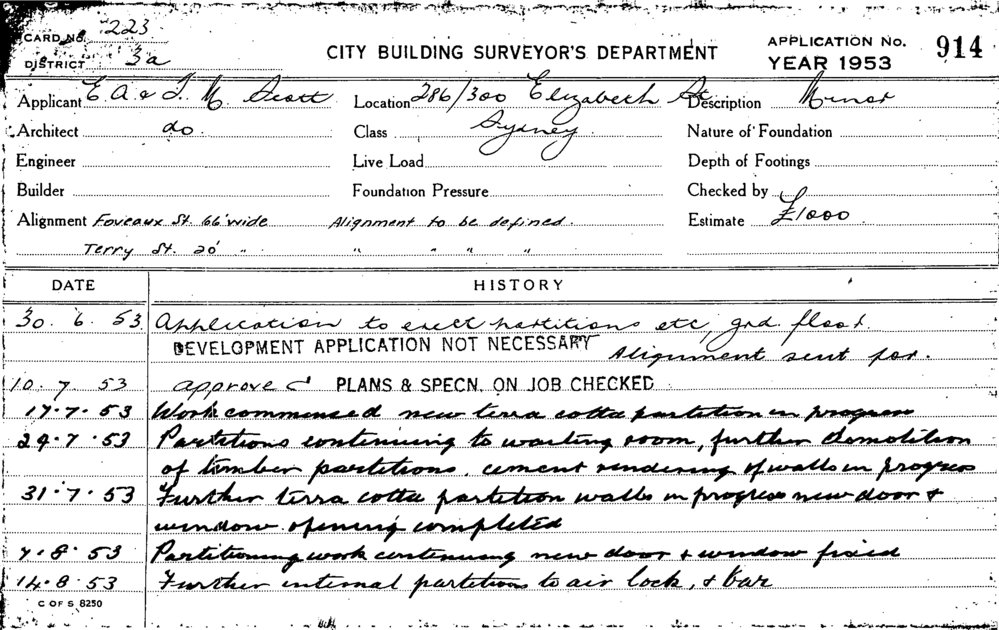 CARD No. 223
DISTRICT 3a
CITY BUILDING SURVEYOR'S DEPARTMENT
APPLICATION No. 914
YEAR 1953
Applicant E A & T. M. Scott Location 286/300 Elizabeth St Description Minor
Architect do. Class Sydney Nature of Foundation
Engineer Live Load Depth of Footings
Builder Foundation Pressure Checked by
Alignment Foveaux St. 66' wide Alignment to be defined. Estimate £1000
Terry St. 20' " " " " "
DATE HISTORY
30. 6. 53 Application to erect partitions etc, grd. floor.
DEVELOPMENT APPLICATION NOT NECESSARY Alignment sent for.
10. 7. 53 approved PLANS & SPECN. ON JOB CHECKED
17. 7. 53 Work commenced new terra cotta partition in progress
29. 7. 53 Partitions continuing to waiting room, further demolition
of timber partitions. cement rendering of walls in progress
31. 7. 53 Further terra cotta partition walls in progress new door &
window opening completed
7. 8. 53 Partitioning work continuing new door & window fixed
14. 8. 53 Further internal partitions to air lock, & bar
C OF S 8250